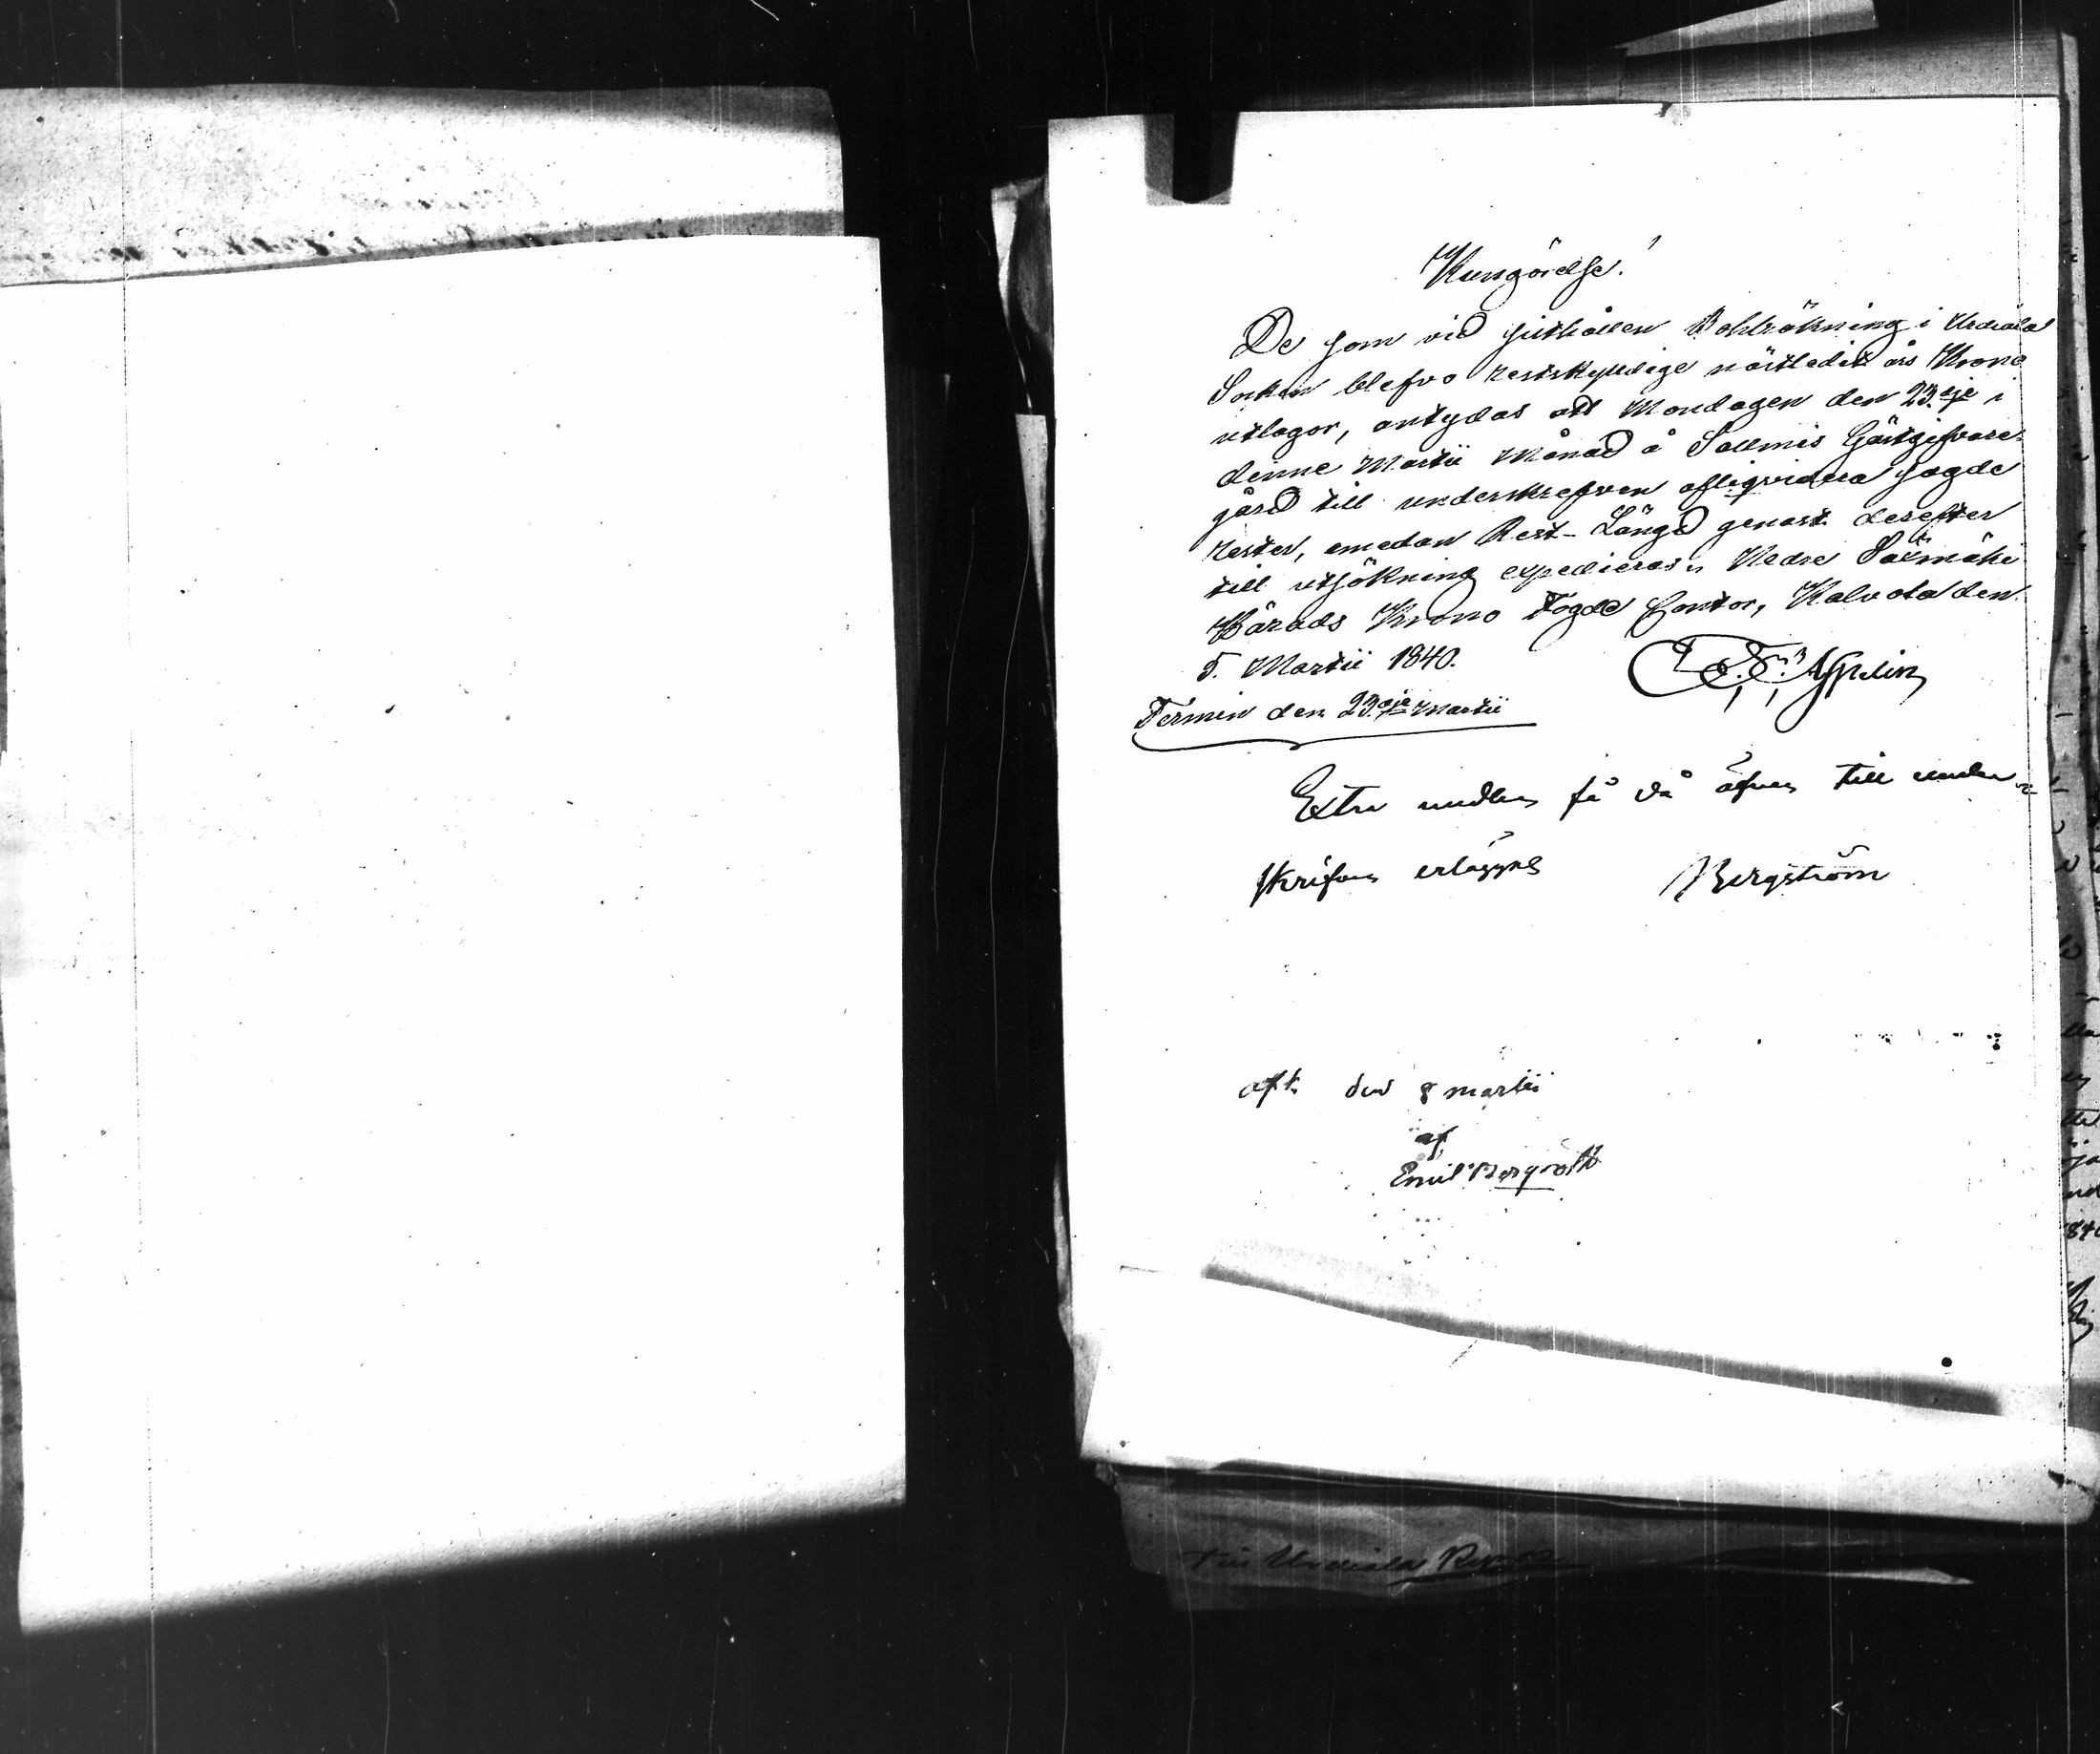 Kungörelse!
De som vid sisthållen Bokräkning i Urdiala
Socken blefvo restskyldige nästledit års Krono
utlagor, antydas att Mondagen den 23.dje i
denne Martii Månad å Sallmis Gästgifvare-
gård till underskrefven aflíqvidera sagde
rester, emedan Rest-Längd genast derefter
till utsökning expedieras. Nedre Saxmäki
Härads Krono Fogde Contor, Kalvola den
5. Martii 1840.
Termin den 23.dje Martii
Extra medlen få då äfven till under-
skrifven erläggas Bergström
aft. den 8 martii
af
Emil Bergroth
Till Urdiala